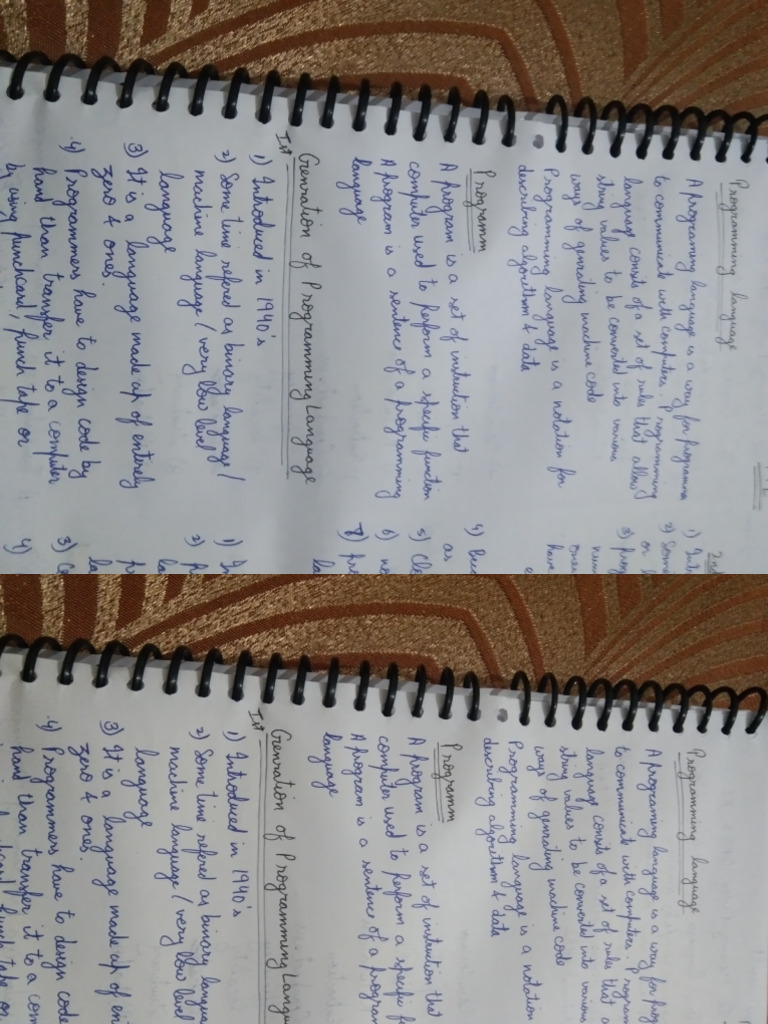 Programming language
A programing language is a way for programma
to communicate with computers. Programming
language consits of a set of rules that allow
string values to be converted into various
ways of genrating machine code
Programming language is a notation for
describing algorithm & data
Programm
A program is a set of instruction that
computer used to perform a specific function
A program is a sentence of a programming
language
Genration of Programming Language
Ist
1) Introduced in 1940's
2) Some time refered as binary language /
machine language / very low level
language
3) It is a language made up of enterely
zero & ones.
4) Programmers have to design code by
hand than transfer it to a computer
by using punchcard, punch tape or
2nd
1)
2) Some
or
3)
ones
have
4)
as
5)
6)
7)
1)
2)
3)
4)
Programming language
A programing language is a way for prog
to communicate with computers. Program
language consits of a set of rules that a
string values to be converted into various
ways of genrating machine code
Programming language is a notation
describing algorithm & data
Programm
A program is a set of instruction that
computer used to perform a specific f
A program is a sentence of a program
language
Genration of Programming Langu
Ist
1) Introduced in 1940's
2) Some time refered as binary langua
machine language / very low level
language
3) It is a language made up of en
zero & ones.
4) Programmers have to design code
hand than transfer it to a com
punch tape or